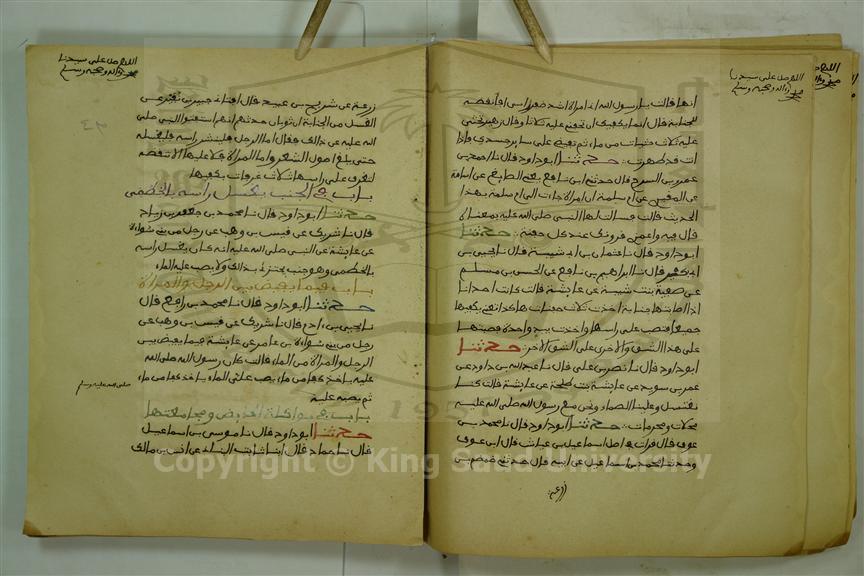 اللهم صل على سيدنا
محمد واله وصحبه وسلم
انها قالت يا رسول الله انى امراة اشد ضفر راسى افانقضه
للجنابة قال انما يكفيك ان تحفنى عليه ثلاثا وقال زهير تحثى
عليه ثلاث حثيات من ماء ثم تفيضى على سائر جسدى فاذا
انت قد طهرت حدثنا ابو داود قال نا احمد بن
عمر بن السرح قال حدثنى ابن نافع يعنى الصايغ عن اسامة
عن المقبرى عن ام سلمة ان امراة جاءت الى ام سلمة بهذا
الحديث قالت فسالت لها النبى صلى الله عليه بمعناه
قال فيه واغمزى قرونك عند كل حفنة حدثنا
ابو داود قال نا عثمان بن ابى شيبة قال نا يحيى بن
ابى بكير قال نا ابراهيم بن نافع عن الحسن بن مسلم
عن صفية بنت شيبة عن عايشة قالت كانت احدانا
اذا اصابتها جنابة اخذت ثلاث حفنات هكذا تعنى بكفيها
جميعا فتصب على راسها واخذت بيد واحدة فصبتها
على هذا الشق والاخرى على الشق الاخر حدثنا
ابو داود قال نا نصر بن على قال نا عبد الله بن داود عن
عمر بن سويد عن عايشة بنت طلحة عن عايشة قالت كنا
نغتسل وعلينا الضماد ونحن مع رسول الله صلى الله عليه
محلات ومحرمات حدثنا ابو داود قال نا محمد بن
عوف قال قرات فى اصل اسماعيل بن عياش قال ابن عوف
وحدثنا محمد بن اسماعيل عن ابيه قال حدثنى ضمضم بن
زرعة
اللهم صل على سيدنا
محمد واله وصحبه وسلم
زرعة عن شريح بن عبيد قال افتانى جبير بن نفير عن
الغسل من الجنابة ان ثوبان حدثهم انهم استفتوا النبى صلى
الله عليه عن ذالك فقال اما الرجل فلينشر راسه فليغسله
حتى يبلغ اصول الشعر واما المراة فلا عليها الا تنقضه
لتغرف على راسها ثلاث غرفات بكفيها
باب فى الجنب يغسل راسه بالخطمى
حدثنا ابو داود قال نا محمد بن جعفر بن زياد
قال نا شريك عن قيس بن وهب عن رجل من بنى سواءة
عن عايشة عن النبى صلى الله عليه انه كان يغسل راسه
بالخطمى وهو جنب يجتزئ بذالك ولا يصب عليه الماء
باب فيما يفيض بين الرجل والمراة
حدثنا ابو داود قال نا محمد بن رافع قال
نا يحيى بن ادم قال نا شريك عن قيس بن وهب عن
رجل من بنى سواءة بن عامر عن عايشة فيما يفيض بين
الرجل والمراة من الماء قالت كان رسول الله صلى الله
عليه ياخذ كفا من ماء يصب على الماء ياخذ كفا من ماء
صلى الله عليه وسلم
ثم يصبه عليه
باب فى مواكلة الحايض ومجامعتها
حدثنا ابو داود قال نا موسى بن اسماعيل
قال نا حماد قال انا ثابت البنانى عن انس بن مالك
Copyright © King Saud University